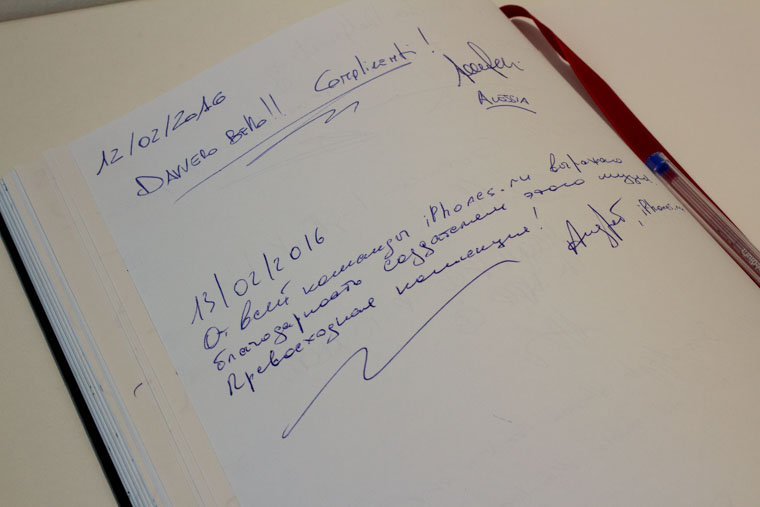 12/02/2016
DAVVERO BELLO!! Complimenti!
ALESSIA
13/02/2016
От всей команды iPhones.ru выражаю
благодарность создателям этого музея.
Превосходная коллекция!
Андрей, iPhones.ru